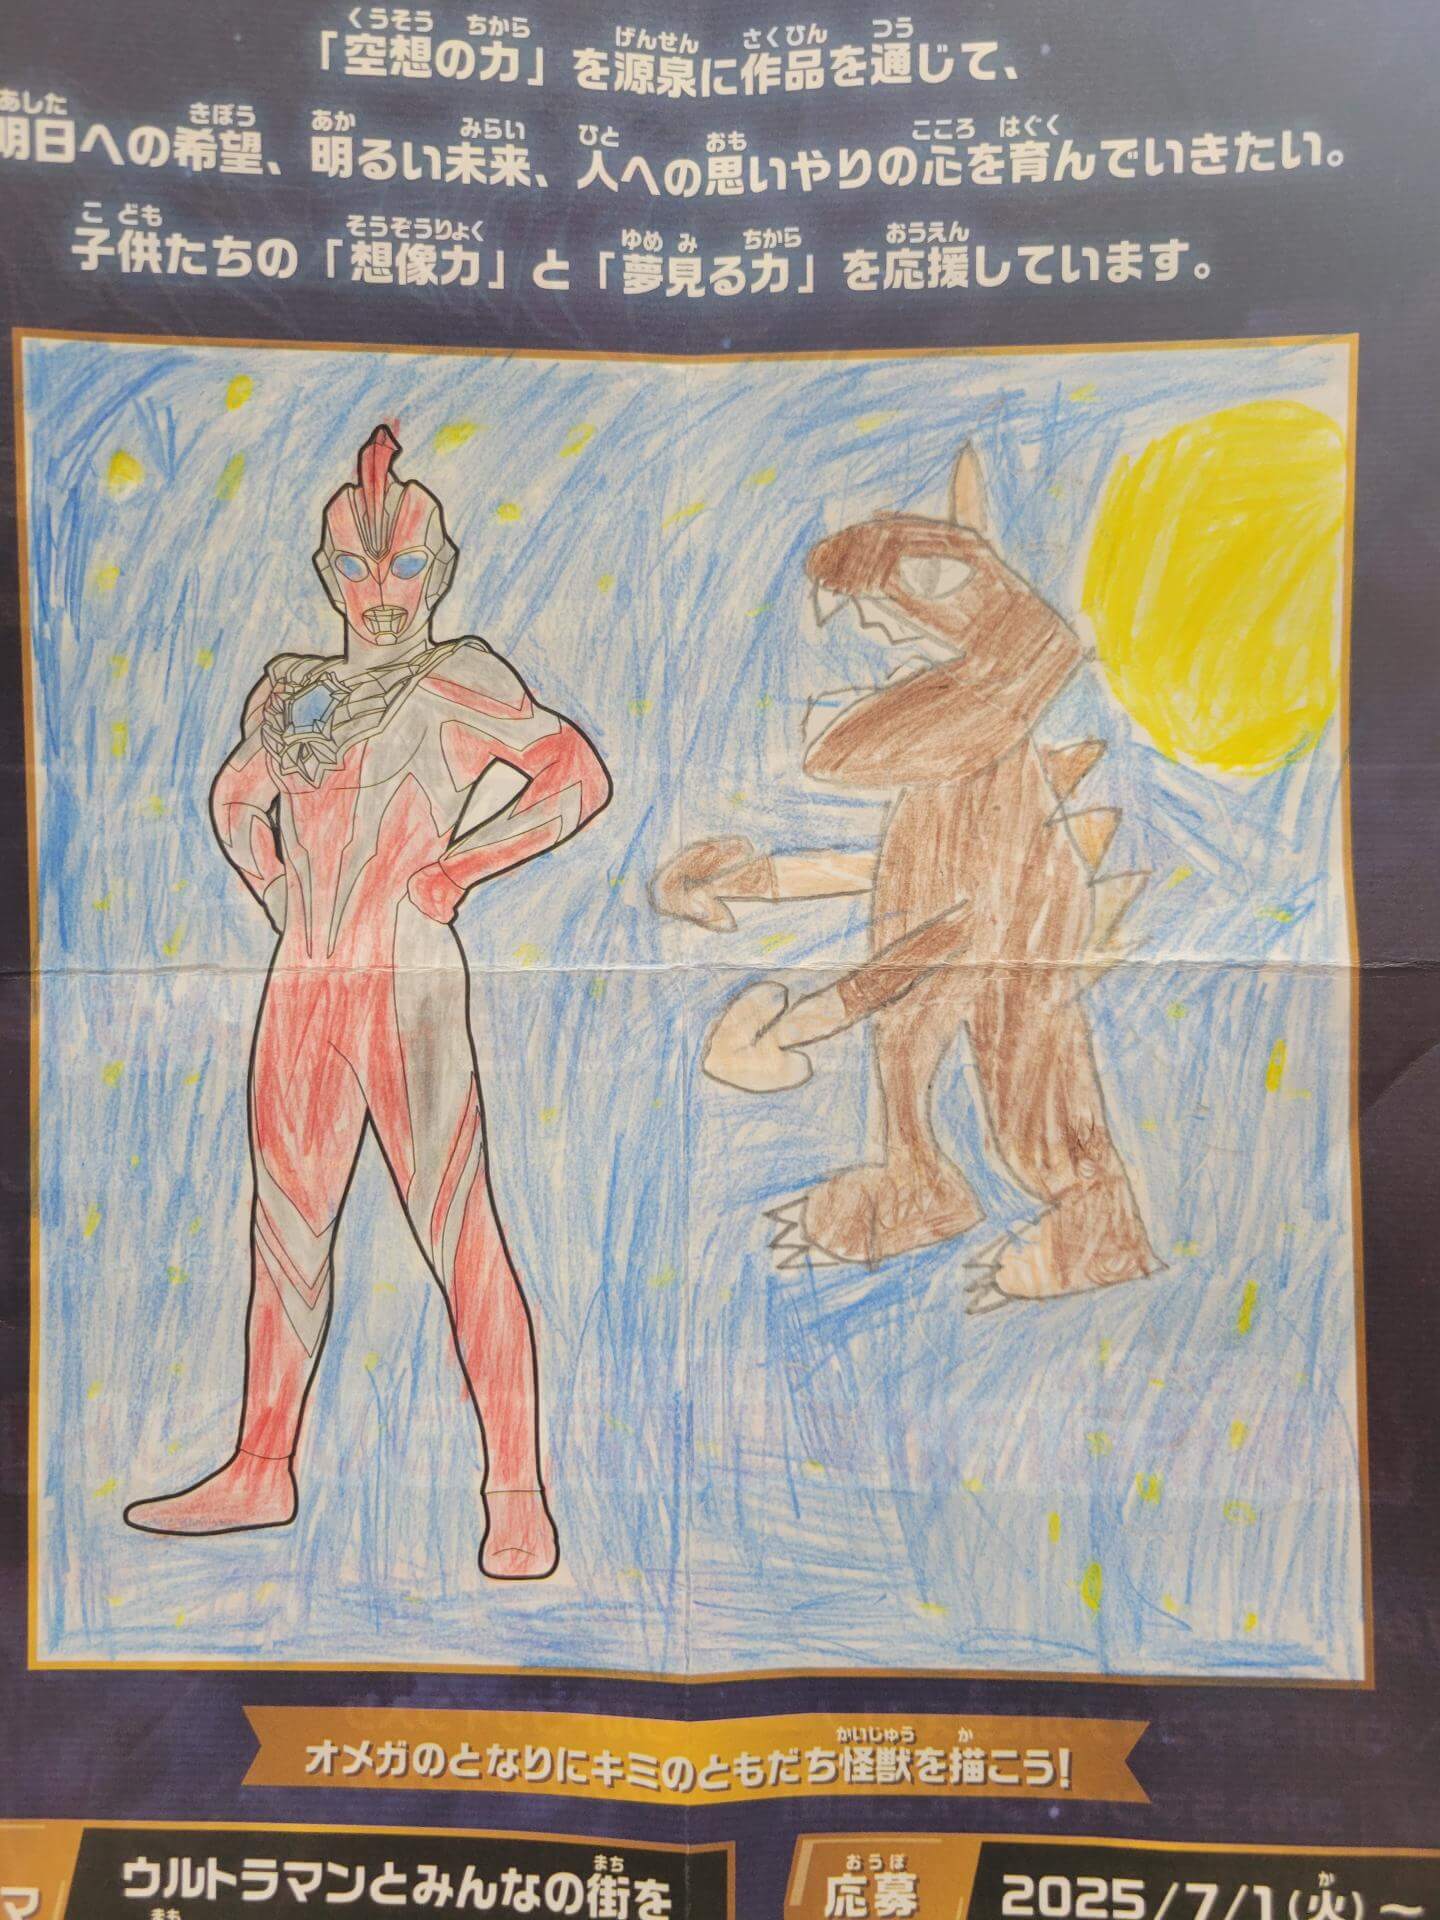 「空想の力」を源泉に作品を通じて、
明日への希望、明るい未来、人への思いやりの心を育んでいきたい。
子供たちの「想像力」と「夢見る力」を応援しています。
オメガのとなりにキミのともだち怪獣を描こう!
マ
ウルトラマンとみんなの街を
応募
2025/7/1(火)～